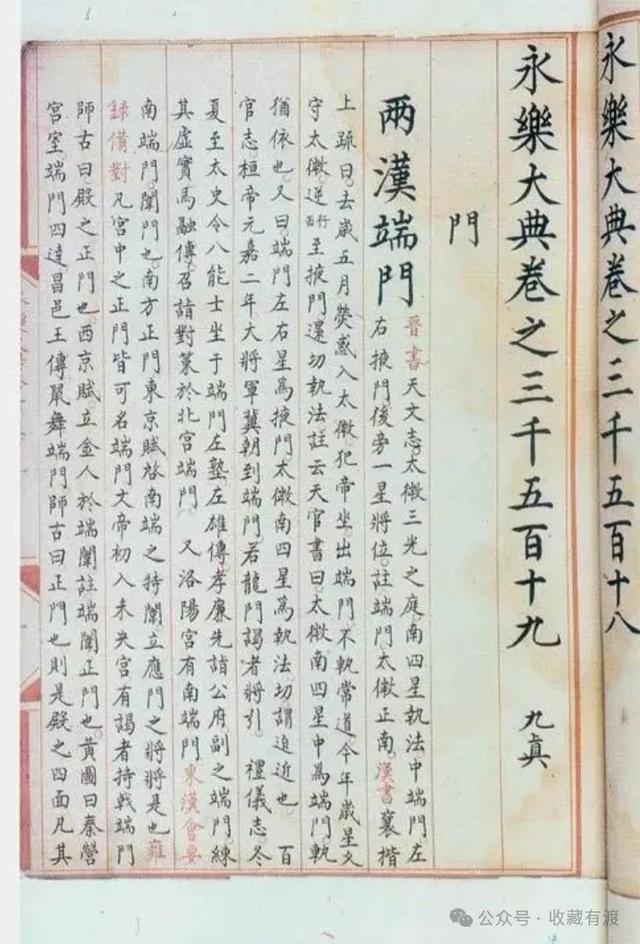 永樂大典卷之三千五百十八
永樂大典卷之三千五百十九 九真
門
兩漢端門
晉書天文志。太微三光之庭。南四星執法中端門左
右掖門後旁一星將位。註端門。太微正南。漢書襄楷
上疏曰。去歲五月熒惑入太微。犯帝坐。出端門不軌常道。今年歲星久
守太微。逆西行至掖門。還切執法。註云天官書曰。太微南四星中為端門。執
猶依也。又曰。端門左右星為掖門。太微南四星為執法。切謂迫近也。 百
官志。桓帝元嘉二年。大將軍冀朝到端門。若龍門謁者將引。 禮儀志。冬
夏至太史令八能士坐于端門左塾。左雄傳。孝廉先詣公府副之端門練
其虛實。馬融傳。召詣對策於北宮端門。 又洛陽宮有南端門東漢會要
南端門。闈門也。南方正門。東京賦。啓南端之特闈立應門之將將是也。雍
錄備對凡宮中之正門皆可名端門。文帝初入未央宮。有謁者持戟端門
師古曰。殿之正門也。西京賦。立金人於端闈。註端闈正門也。黃圖曰。秦營
宮室。端門四達。昌邑王傳鼠舞端門。師古曰正門也則是殿之四面凡其
公众号·收藏有渡